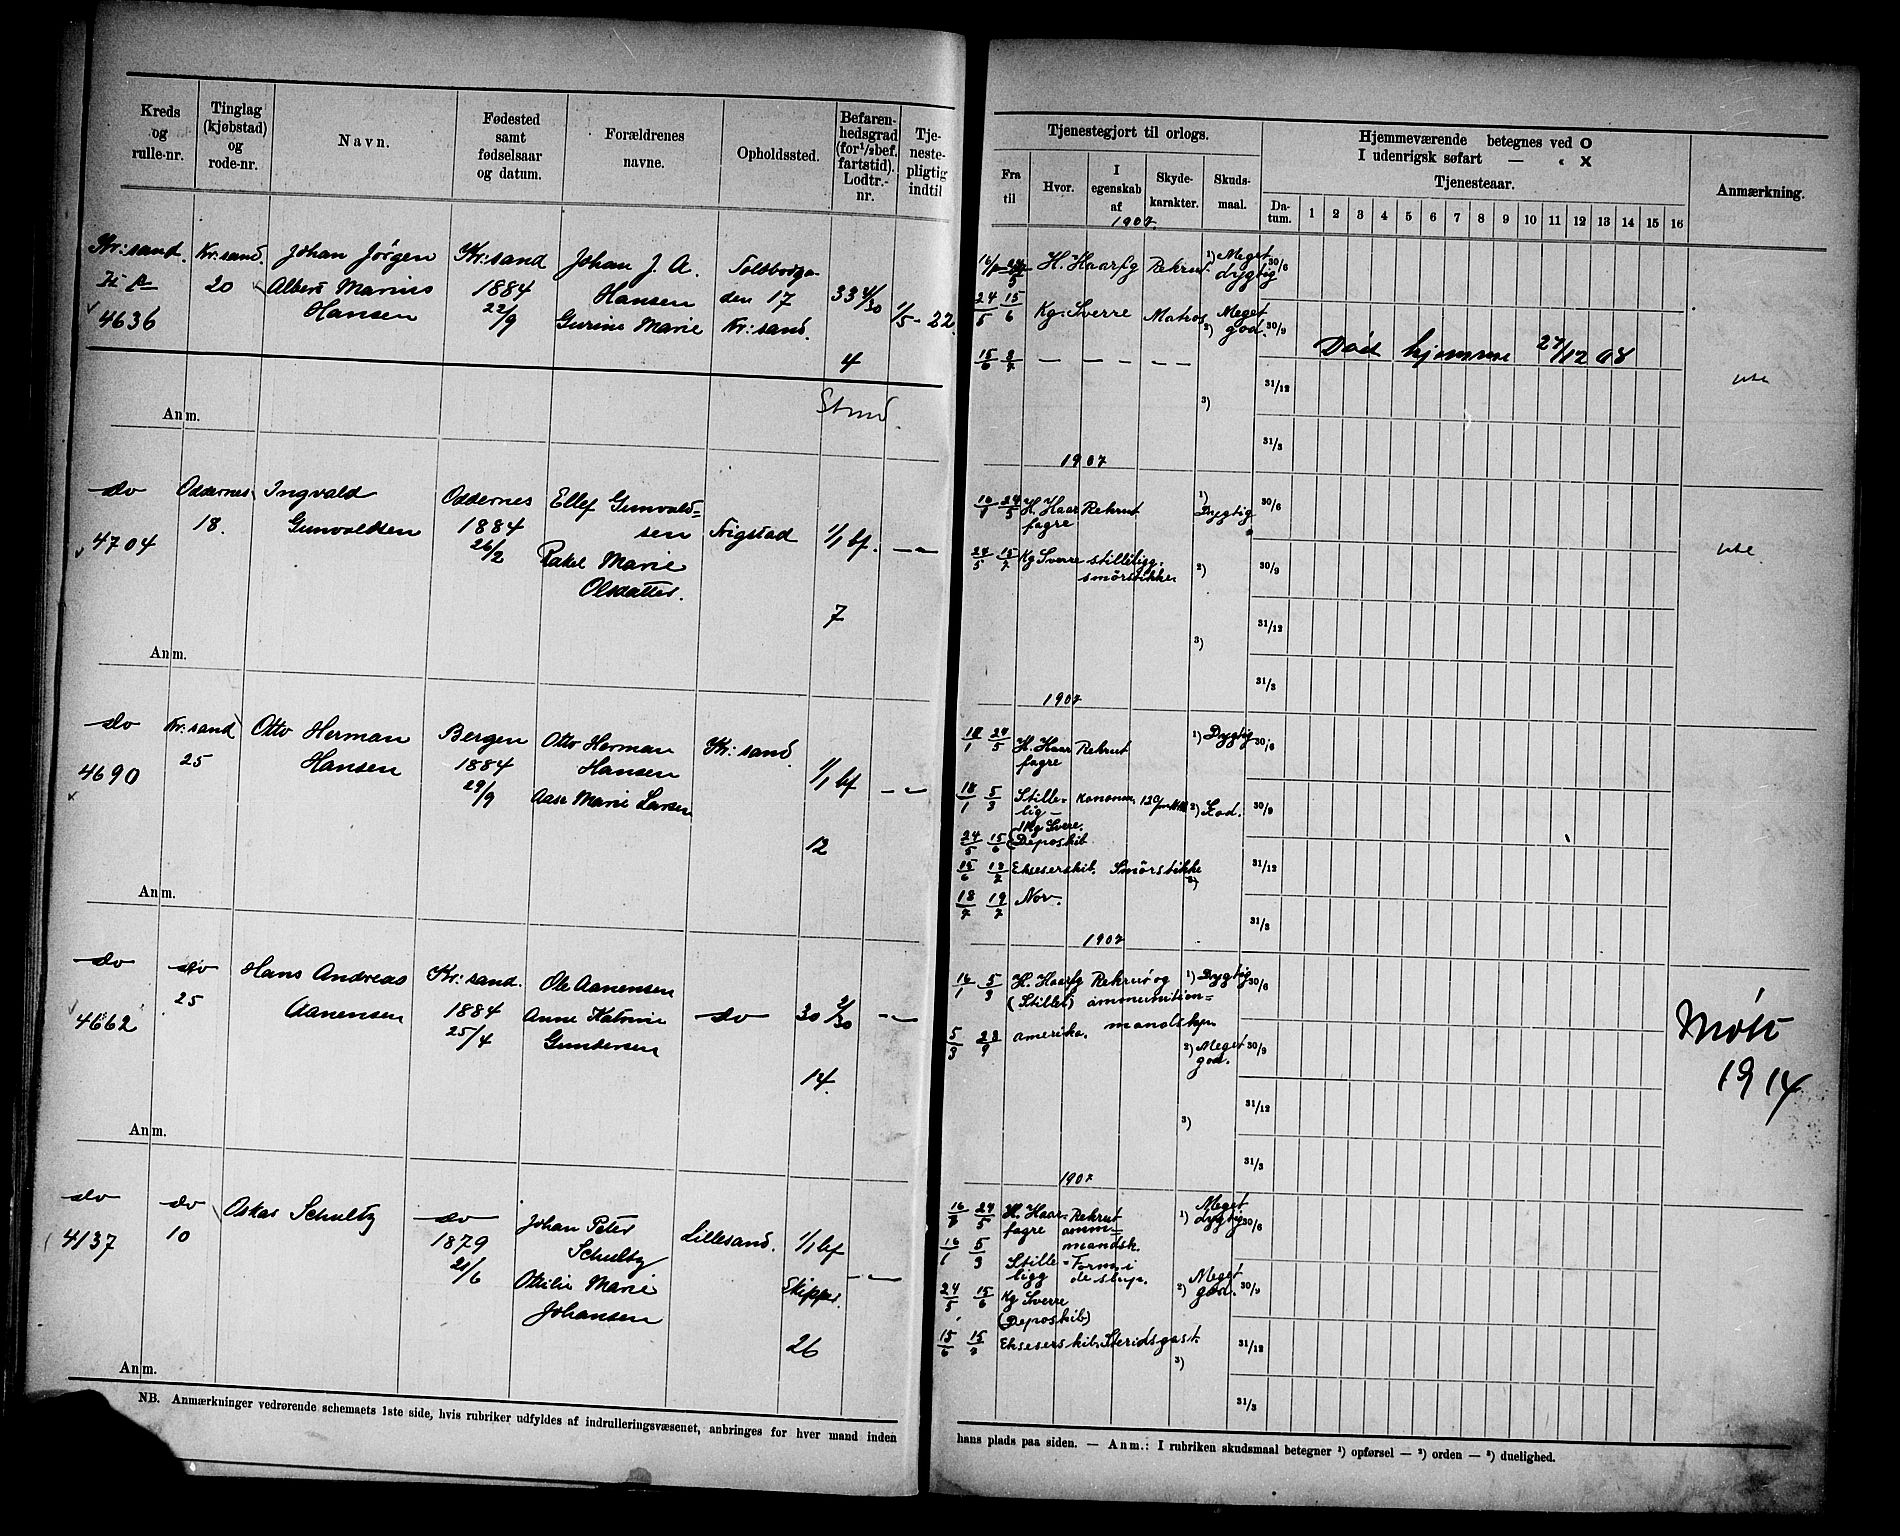 Kreds og rulle-nr.
Tinglag (kjøbstad) og rode-nr.
Navn.
Fødested samt fødselsaar og datum.
Forældrenes navne.
Opholdssted.
Befaren-hedsgrad (for 1/2 bef. fartstid). Lodtr.-nr.
Tje-neste-pligtig indtil
Kr:sand.
4636
Kr:sand.
20
Johan Jörgen
Albert Marius
Hansen
Kr:sand
1884
22/9
Johan J. A.
Hansen
Gurine Marie
Toldbodga-
den 17
Kr:sand.
33 4/30
4
1/5 - 22.
Anm.
do
4704
Oddernes
18.
Ingvald
Gunvaldsen
Oddernes
1884
26/2
Ellef Gunvald=
sen
Rakel Marie
Olsdatter.
1/1 bf.
7
Anm.
do
4690
Kr:sand
25
Otto Herman
Hansen
Bergen
1884
29/9
Otto Herman
Hansen
Aase Marie Larsen
Kr:sand.
1/1 bf
12
Anm.
do
4662
do
25
Hans Andreas
Aanensen
Kr:sand.
1884
25/4
Ole Aanensen
Anne Katrine
Gundersen
do
30 2/30
14.
Anm.
do
4137
do
10
Oskar Schultz
do
1879
21/6
Johan Peter
Schultz
Othilie Marie
Johansen
Lillesand.
1/1 bf
Skipper.
26
Anm.
NB. Anmærkninger vedrørende schemaets 1ste side, hvis rubriker udfyldes af indrulleringsvæsenet, anbringes for hver mand inden
Tjenestegjort til orlogs.
Hjemmeværende betegnes ved O
I udenrigsk søfart — « X
Tjenesteaar.
Anmærkning.
Fra til
Hvor.
I egenskab af
Skyde-karakter.
Skuds-maal.
Da-tum.
1 2 3 4 5 6 7 8 9 10 11 12 13 14 15 16
1907
H. Haarfg Rekrut.
1) Meget dygtig
30/6
24/5 15/6 Kg. Sverre Matros
2) Meget god.
30/9
Död hjemme 27/12 08
3)
31/12
31/3
1907
16/1 24/5 H. Haar Rekrut
fagre
1) Dygtig
30/6
24/5 15/7 Kg Sverre stilleligg.
smörstikke.
2)
30/9
3)
31/12
31/3
1907
18/1 24/5 H. Haar Rekrut
fagre
1) Dygtig
30/6
18/1 5/3 Stille-
lig
2) God.
30/9
Kg Sverre.
24/5 15/6 (Deposkib
Ekserserskib. Smörstikke
3)
31/12
18/7 19/7 Nov.
31/3
1907
16/1 5/3 H. Haarfg Rekrut og
(Stillel) ammunition=
1) Dygtig
30/6
amerika.
2) Meget god.
30/9
3)
31/12
31/3
Möti
1914
1907
24/5 H. Haar- Rekrut
fagre amm=
mandsk.
1) Meget dygtig
30/6
16/1 5/3 Stille-
ligg
2) Meget god.
30/9
24/5 15/6 Kg Sverre
(Deposkib)
Ekserserskib.
3)
31/12
31/3
hans plads paa siden. — Anm.: I rubriken skudsmaal betegner 1) opførsel — 2) orden — 3) duelighed.